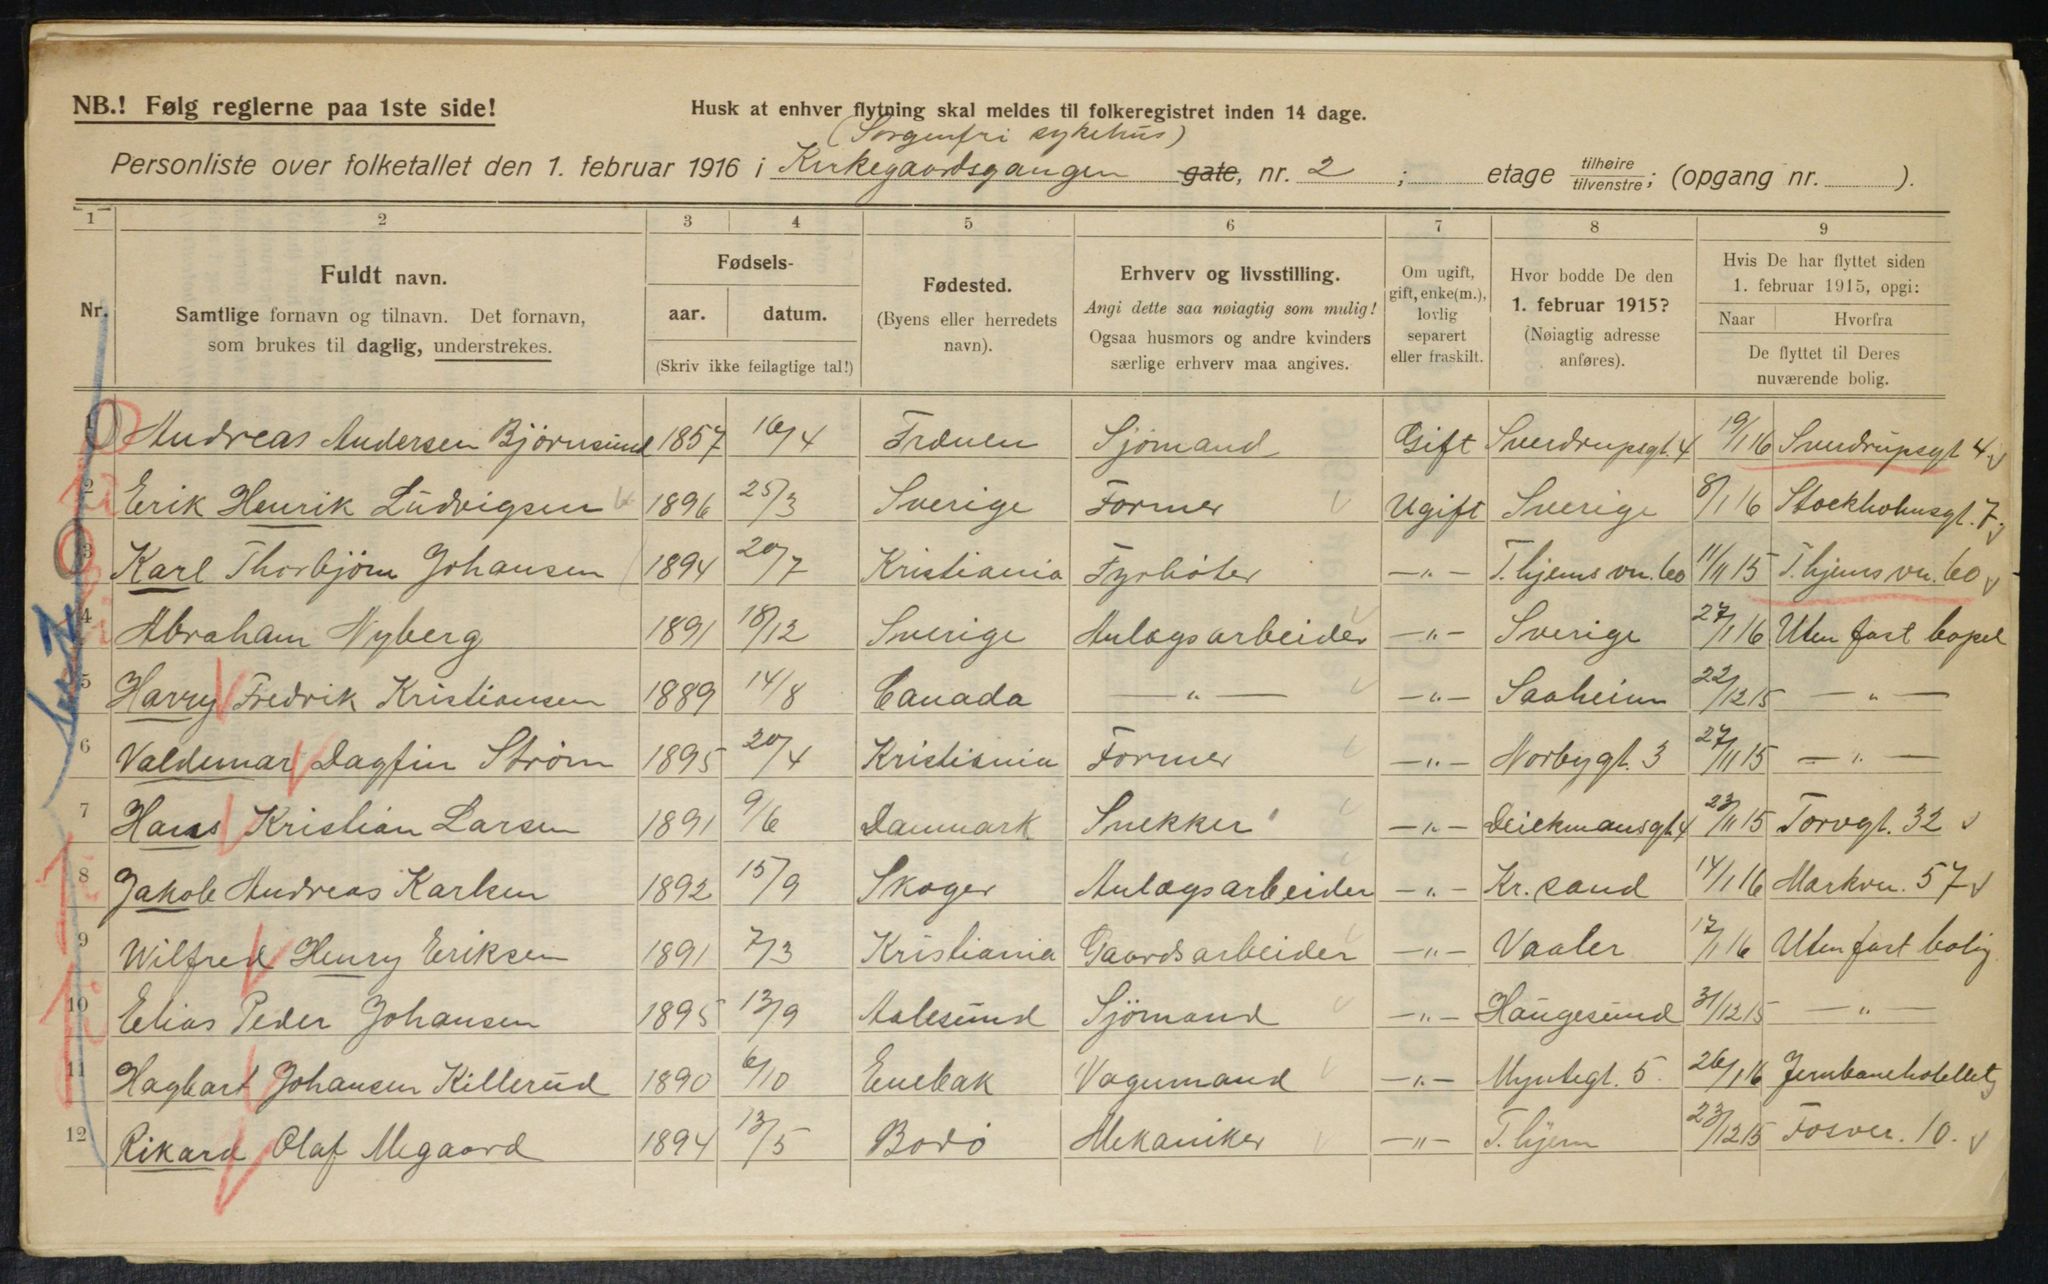 NB.! Følg reglerne paa 1ste side!
Husk at enhver flytning skal meldes til folkeregistret inden 14 dage.
(Sorgenfri sykehus)
Personliste over folketallet den 1. februar 1916 i Kirkegaardsgangen gate, nr. 2 ; etage tilhøire/tilvenstre; (opgang nr. ).
1 2 3 4 5 6 7 8 9
Nr. Fuldt navn. Samtlige fornavn og tilnavn. Det fornavn, som brukes til daglig, understrekes.
Fødsels- aar. datum. (Skriv ikke feilagtige tal!)
Fødested. (Byens eller herredets navn).
Erhverv og livsstilling. Angi dette saa nøiagtig som mulig! Ogsaa husmors og andre kvinders særlige erhverv maa angives.
Om ugift, gift, enke(m.), lovlig separert eller fraskilt.
Hvor bodde De den 1. februar 1915? (Nøiagtig adresse anføres).
Hvis De har flyttet siden 1. februar 1915, opgi: Naar Hvorfra De flyttet til Deres nuværende bolig.
1 Andreas Andersen Bjørnsund 1857 16/4 Frænen Sjömand Gift Sverdrupsgt. 4 19/1 16 Sverdrupsgt 4
2 Erik Henrik Ludvigsen 1896 25/3 Sverige Former Ugift Sverige 8/1 16 Stockholmsgt. 7
3 Karl Thorbjörn Johansen 1894 20/7 Kristiania Fyrböter —"— T.hjems vn. 60 11/11 15 T.hjems vn. 60
4 Abraham Nyberg 1891 18/12 Sverige Anlægsarbeider —"— Sverige 27/1 16 Uten fast bopel
5 Harry Fredrik Kristiansen 1889 14/8 Canada —"— —"— Saaheim 22/12 15 —"—
6 Valdemar Dagfin Ström 1895 20/4 Kristiania Former —"— Norbygt. 3 27/11 15 —"—
7 Hans Kristian Larsen 1891 9/6 Danmark Snekker —"— Deickmansgt 4 23/11 15 Torvgt. 32
8 Jakob Andreas Karlsen 1892 15/9 Skoger Anlægsarbeider —"— Kr.sand 14/1 16 Markvn. 57
9 Wilfred Henry Eriksen 1891 7/3 Kristiania Gaardsarbeider —"— Vaaler 17/1 16 Uten fast bolig
10 Elias Peder Johansen 1895 13/9 Aalesund Sjömand —"— Haugesund 31/12 15 —"—
11 Hagbart Johansen Killerud 1890 6/10 Enebak Vognmand —"— Myntegt. 5. 26/1 16 Jernbanehotellet
12 Rikard Olaf Megaard 1894 13/5 Bodö Mekaniker —"— T.hjem 23/12 15 Fosvei. 10.